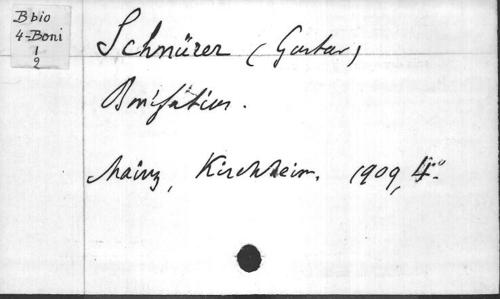 B bio
4-Boni
1
2
Schnürer (Gustav)
Bonifatius.
Mainz, Kirchheim. 1909, 4.º